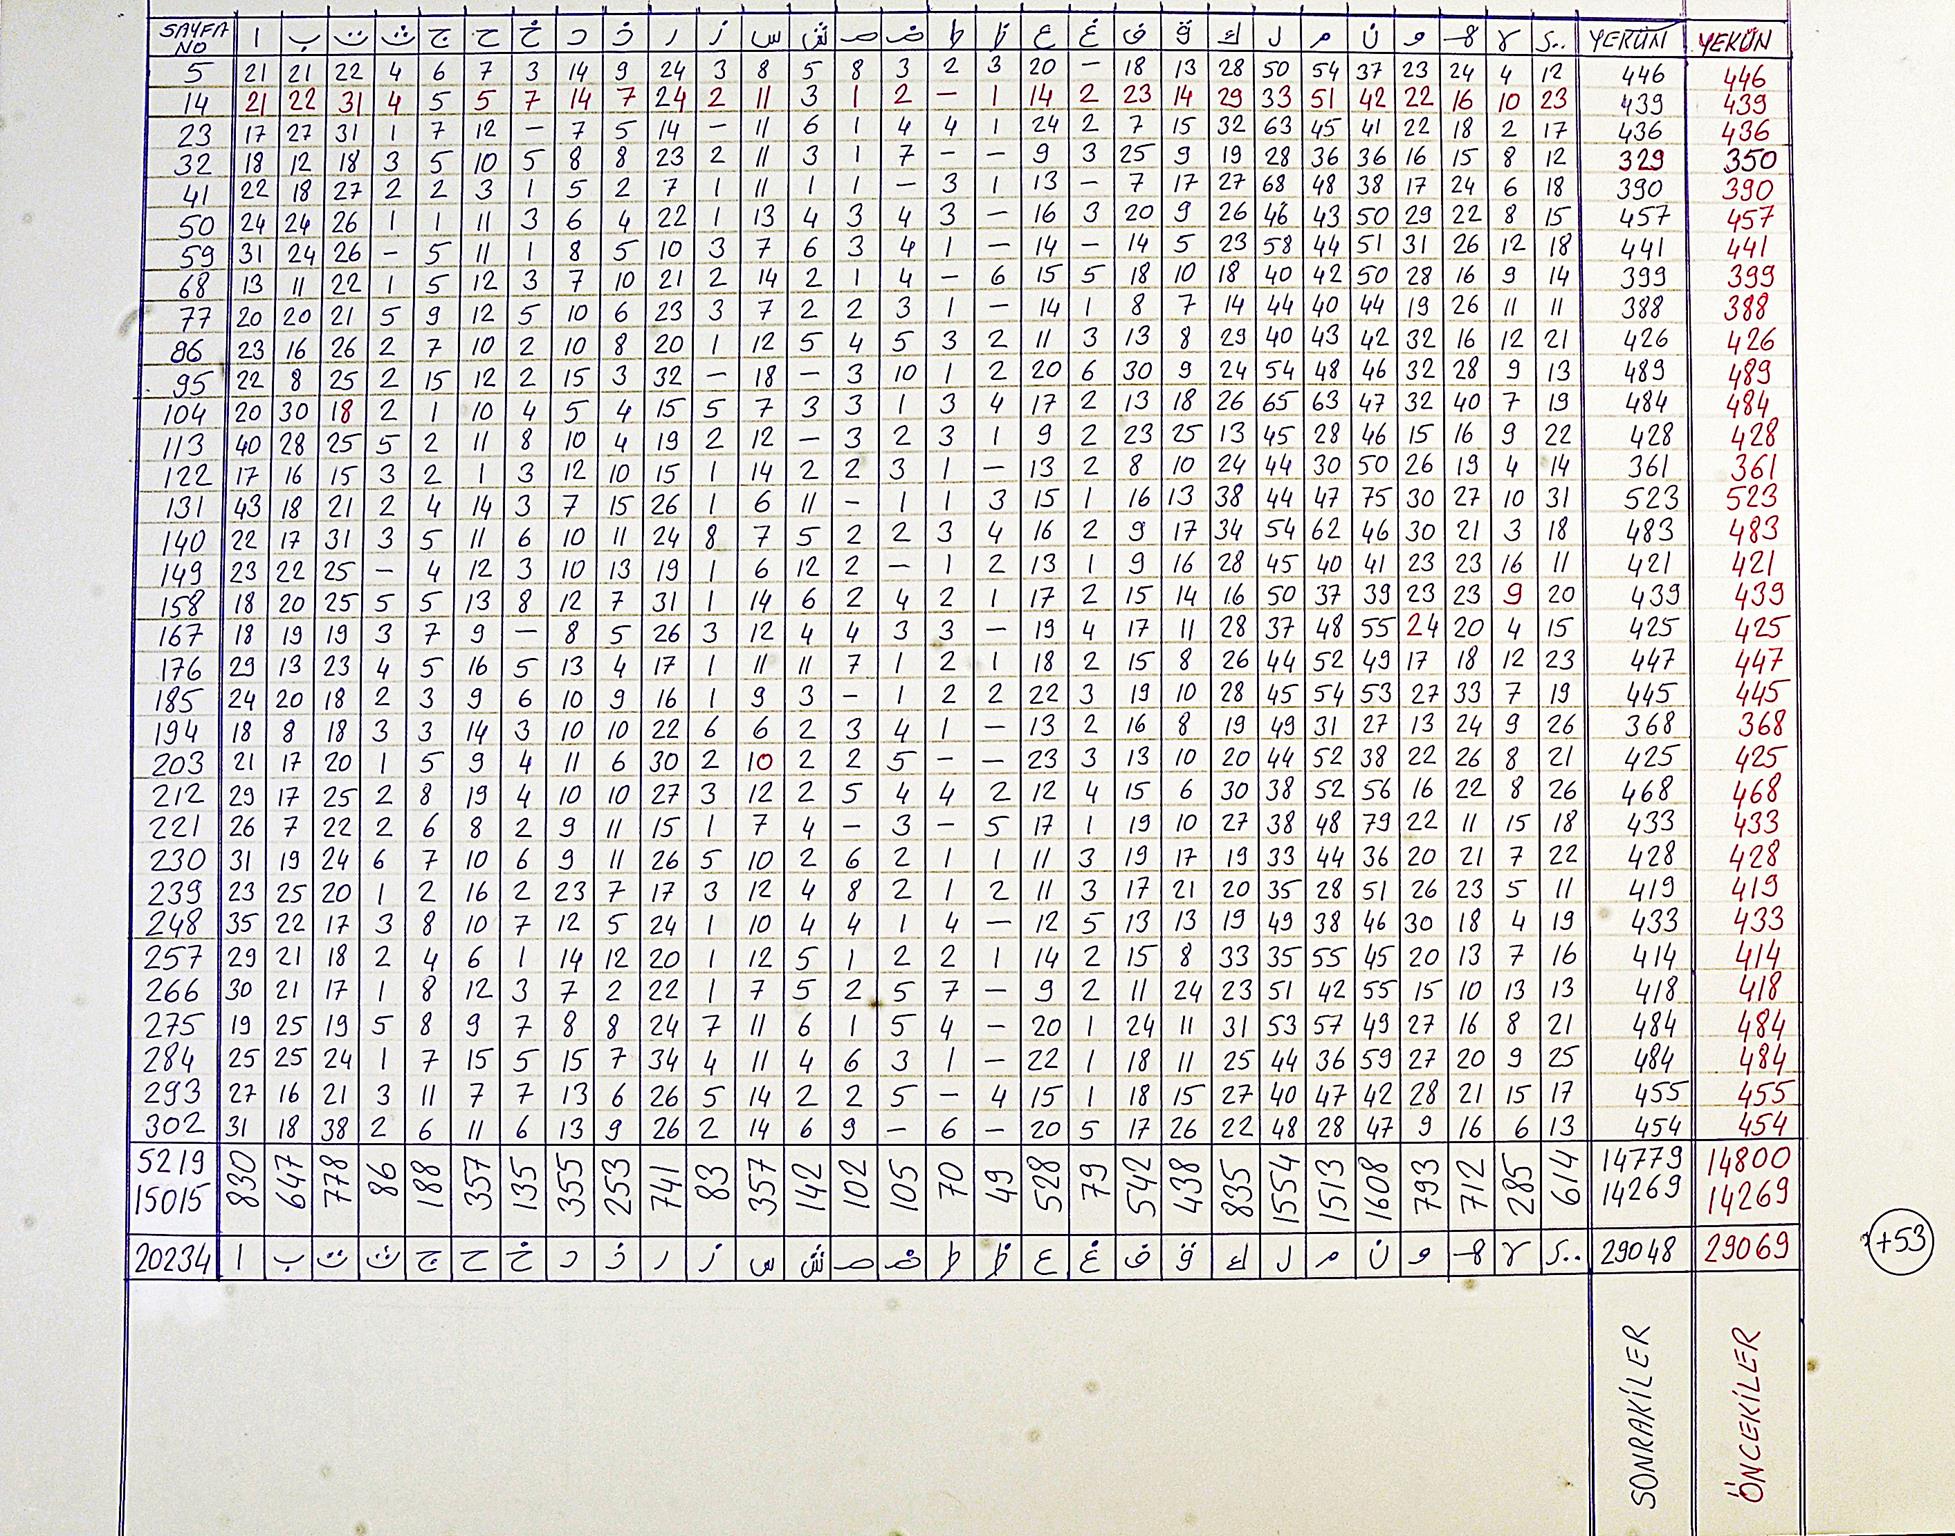 SAYFA NO ا ب ت ث ج ح خ د ذ ر ز س ش ص ض ط ظ ع غ ف ق ك ل م ن و ه لا ي YEKÜN YEKÜN
5 21 21 22 4 6 7 3 14 9 24 3 8 5 8 3 2 3 20 – 18 13 28 50 54 37 23 24 4 12 446 446
14 21 22 31 4 5 5 7 14 7 24 2 11 3 1 2 – 1 14 2 23 14 29 33 51 42 22 16 10 23 439 439
23 17 27 31 1 7 12 – 7 5 14 – 11 6 1 4 4 1 24 2 7 15 32 63 45 41 22 18 2 17 436 436
32 18 12 18 3 5 10 5 8 8 23 2 11 3 1 7 – – 9 3 25 9 19 28 36 36 16 15 8 12 329 350
41 22 18 27 2 2 3 1 5 2 7 1 11 1 1 – 3 1 13 – 7 17 27 68 48 38 17 24 6 18 390 390
50 24 24 26 1 1 11 3 6 4 22 1 13 4 3 4 3 – 16 3 20 9 26 46 43 50 29 22 8 15 457 457
59 31 24 26 – 5 11 1 8 5 10 3 7 6 3 4 1 – 14 – 14 5 23 58 44 51 31 26 12 18 441 441
68 13 11 22 1 5 12 3 7 10 21 2 14 2 1 4 – 6 15 5 18 10 18 40 42 50 28 16 9 14 399 399
77 20 20 21 5 9 12 5 10 6 23 3 7 2 2 3 1 – 14 1 8 7 14 44 40 44 19 26 11 11 388 388
86 23 16 26 2 7 10 2 10 8 20 1 12 5 4 5 3 2 11 3 13 8 29 40 43 42 32 16 12 21 426 426
95 22 8 25 2 15 12 2 15 3 32 – 18 – 3 10 1 2 20 6 30 9 24 54 48 46 32 28 9 13 489 489
104 20 30 18 2 1 10 4 5 4 15 5 7 3 3 1 3 4 17 2 13 18 26 65 63 47 32 40 7 19 484 484
113 40 28 25 5 2 11 8 10 4 19 2 12 – 3 2 3 1 9 2 23 25 13 45 28 46 15 16 9 22 428 428
122 17 16 15 3 2 1 3 12 10 15 1 14 2 2 3 1 – 13 2 8 10 24 44 30 50 26 19 4 14 361 361
131 43 18 21 2 4 14 3 7 15 26 1 6 11 – 1 1 3 15 1 16 13 38 44 47 75 30 27 10 31 523 523
140 22 17 31 3 5 11 6 10 11 24 8 7 5 2 2 3 4 16 2 9 17 34 54 62 46 30 21 3 18 483 483
149 23 22 25 – 4 12 3 10 13 19 1 6 12 2 – 1 2 13 1 9 16 28 45 40 41 23 23 16 11 421 421
158 18 20 25 5 5 13 8 12 7 31 1 14 6 2 4 2 1 17 2 15 14 16 50 37 39 23 23 9 20 439 439
167 18 19 19 3 7 9 – 8 5 26 3 12 4 4 3 3 – 19 4 17 11 28 37 48 55 24 20 4 15 425 425
176 29 13 23 4 5 16 5 13 4 17 1 11 11 7 1 2 1 18 2 15 8 26 44 52 49 17 18 12 23 447 447
185 24 20 18 2 3 9 6 10 9 16 1 9 3 – 1 2 2 22 3 19 10 28 45 54 53 27 33 7 19 445 445
194 18 8 18 3 3 14 3 10 10 22 6 6 2 3 4 1 – 13 2 16 8 19 49 31 27 13 24 9 26 368 368
203 21 17 20 1 5 9 4 11 6 30 2 10 2 2 5 – – 23 3 13 10 20 44 52 38 22 26 8 21 425 425
212 29 17 25 2 8 19 4 10 10 27 3 12 2 5 4 4 2 12 4 15 6 30 38 52 56 16 22 8 26 468 468
221 26 7 22 2 6 8 2 9 11 15 1 7 4 – 3 – 5 17 1 19 10 27 38 48 79 22 11 15 18 433 433
230 31 19 24 6 7 10 6 9 11 26 5 10 2 6 2 1 1 11 3 19 17 19 33 44 36 20 21 7 22 428 428
239 23 25 20 1 2 16 2 23 7 17 3 12 4 8 2 1 2 11 3 17 21 20 35 28 51 26 23 5 11 419 419
248 35 22 17 3 8 10 7 12 5 24 1 10 4 4 1 4 – 12 5 13 13 19 49 38 46 30 18 4 19 433 433
257 29 21 18 2 4 6 1 14 12 20 1 12 5 1 2 2 1 14 2 15 8 33 35 55 45 20 13 7 16 414 414
266 30 21 17 1 8 12 3 7 2 22 1 7 5 2 5 7 – 9 2 11 24 23 51 42 55 15 10 13 13 418 418
275 19 25 19 5 8 9 7 8 8 24 7 11 6 1 5 4 – 20 1 24 11 31 53 57 49 27 16 8 21 484 484
284 25 25 24 1 7 15 5 15 7 34 4 11 4 6 3 1 – 22 1 18 11 25 44 36 59 27 20 9 25 484 484
293 27 16 21 3 11 7 7 13 6 26 5 14 2 2 5 – 4 15 1 18 15 27 40 47 42 28 21 15 17 455 455
302 31 18 38 2 6 11 6 13 9 26 2 14 6 9 – 6 – 20 5 17 26 22 48 28 47 9 16 6 13 454 454
5219 830 647 778 86 188 357 135 355 253 741 83 357 142 102 105 70 49 528 79 542 438 835 1554 1513 1608 793 712 285 614 14779 14800
15015 14269 14269
20234 ا ب ت ث ج ح خ د ذ ر ز س ش ص ض ط ظ ع غ ف ق ك ل م ن و ه لا ي 29048 29069
+53
SONRAKİLER
ÖNCEKİLER